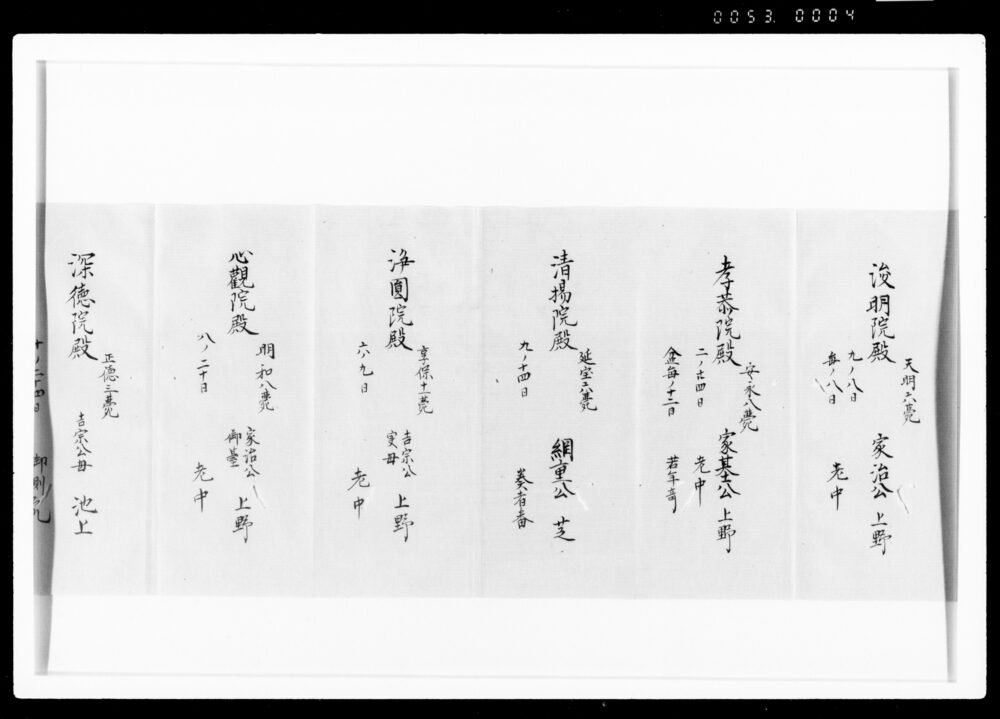 0053. 0004
天明六薨
浚明院殿 家治公 上野
九ノ八日
毎ノ八日 老中
安永八薨
孝恭院殿 家基公 上野
二ノ廿四日 老中
盆毎ノ十二日 若年寄
延宝六薨
清揚院殿 綱重公 芝
九ノ十四日 奏者番
享保十一薨
浄圓院殿 吉宗公実母 上野
六ノ九日 老中
明和八薨
心觀院殿 家治公御臺 上野
八ノ二十日 老中
正徳三薨
深徳院殿 吉宗公母 池上
十ノ二十四日